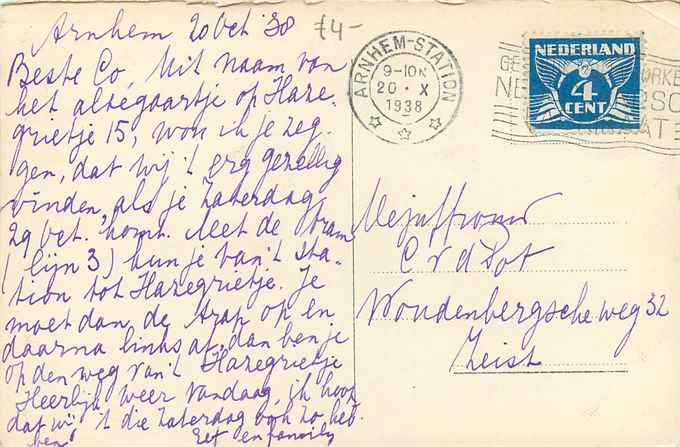 Arnhem 20 Oct '38
£4-
Beste Co, Uit naam van
het alzegaartje op Haze-
grietje 15, won ik je zeg-
gen, dat wij 't erg gezellig
vinden, als je Zaterdag
29 Oct. komt. Met de tram
(lijn 3) kun je van 't sta-
tion tot Hazegrietje. Je
moet dan de trap op en
daarna links af, dan ben je
op den weg van 't Hazegrietje
Heerlijk weer vandaag, ik hoop
dat wij 't die Zaterdag ook zo heb-
ben!
Eef en family
ARNHEM-STATION
9-10N
20 · X
1938
NEDERLAND
4
CENT
Mejuffrouw
C v d Pot
Woudenbergsche weg 32
Zeist